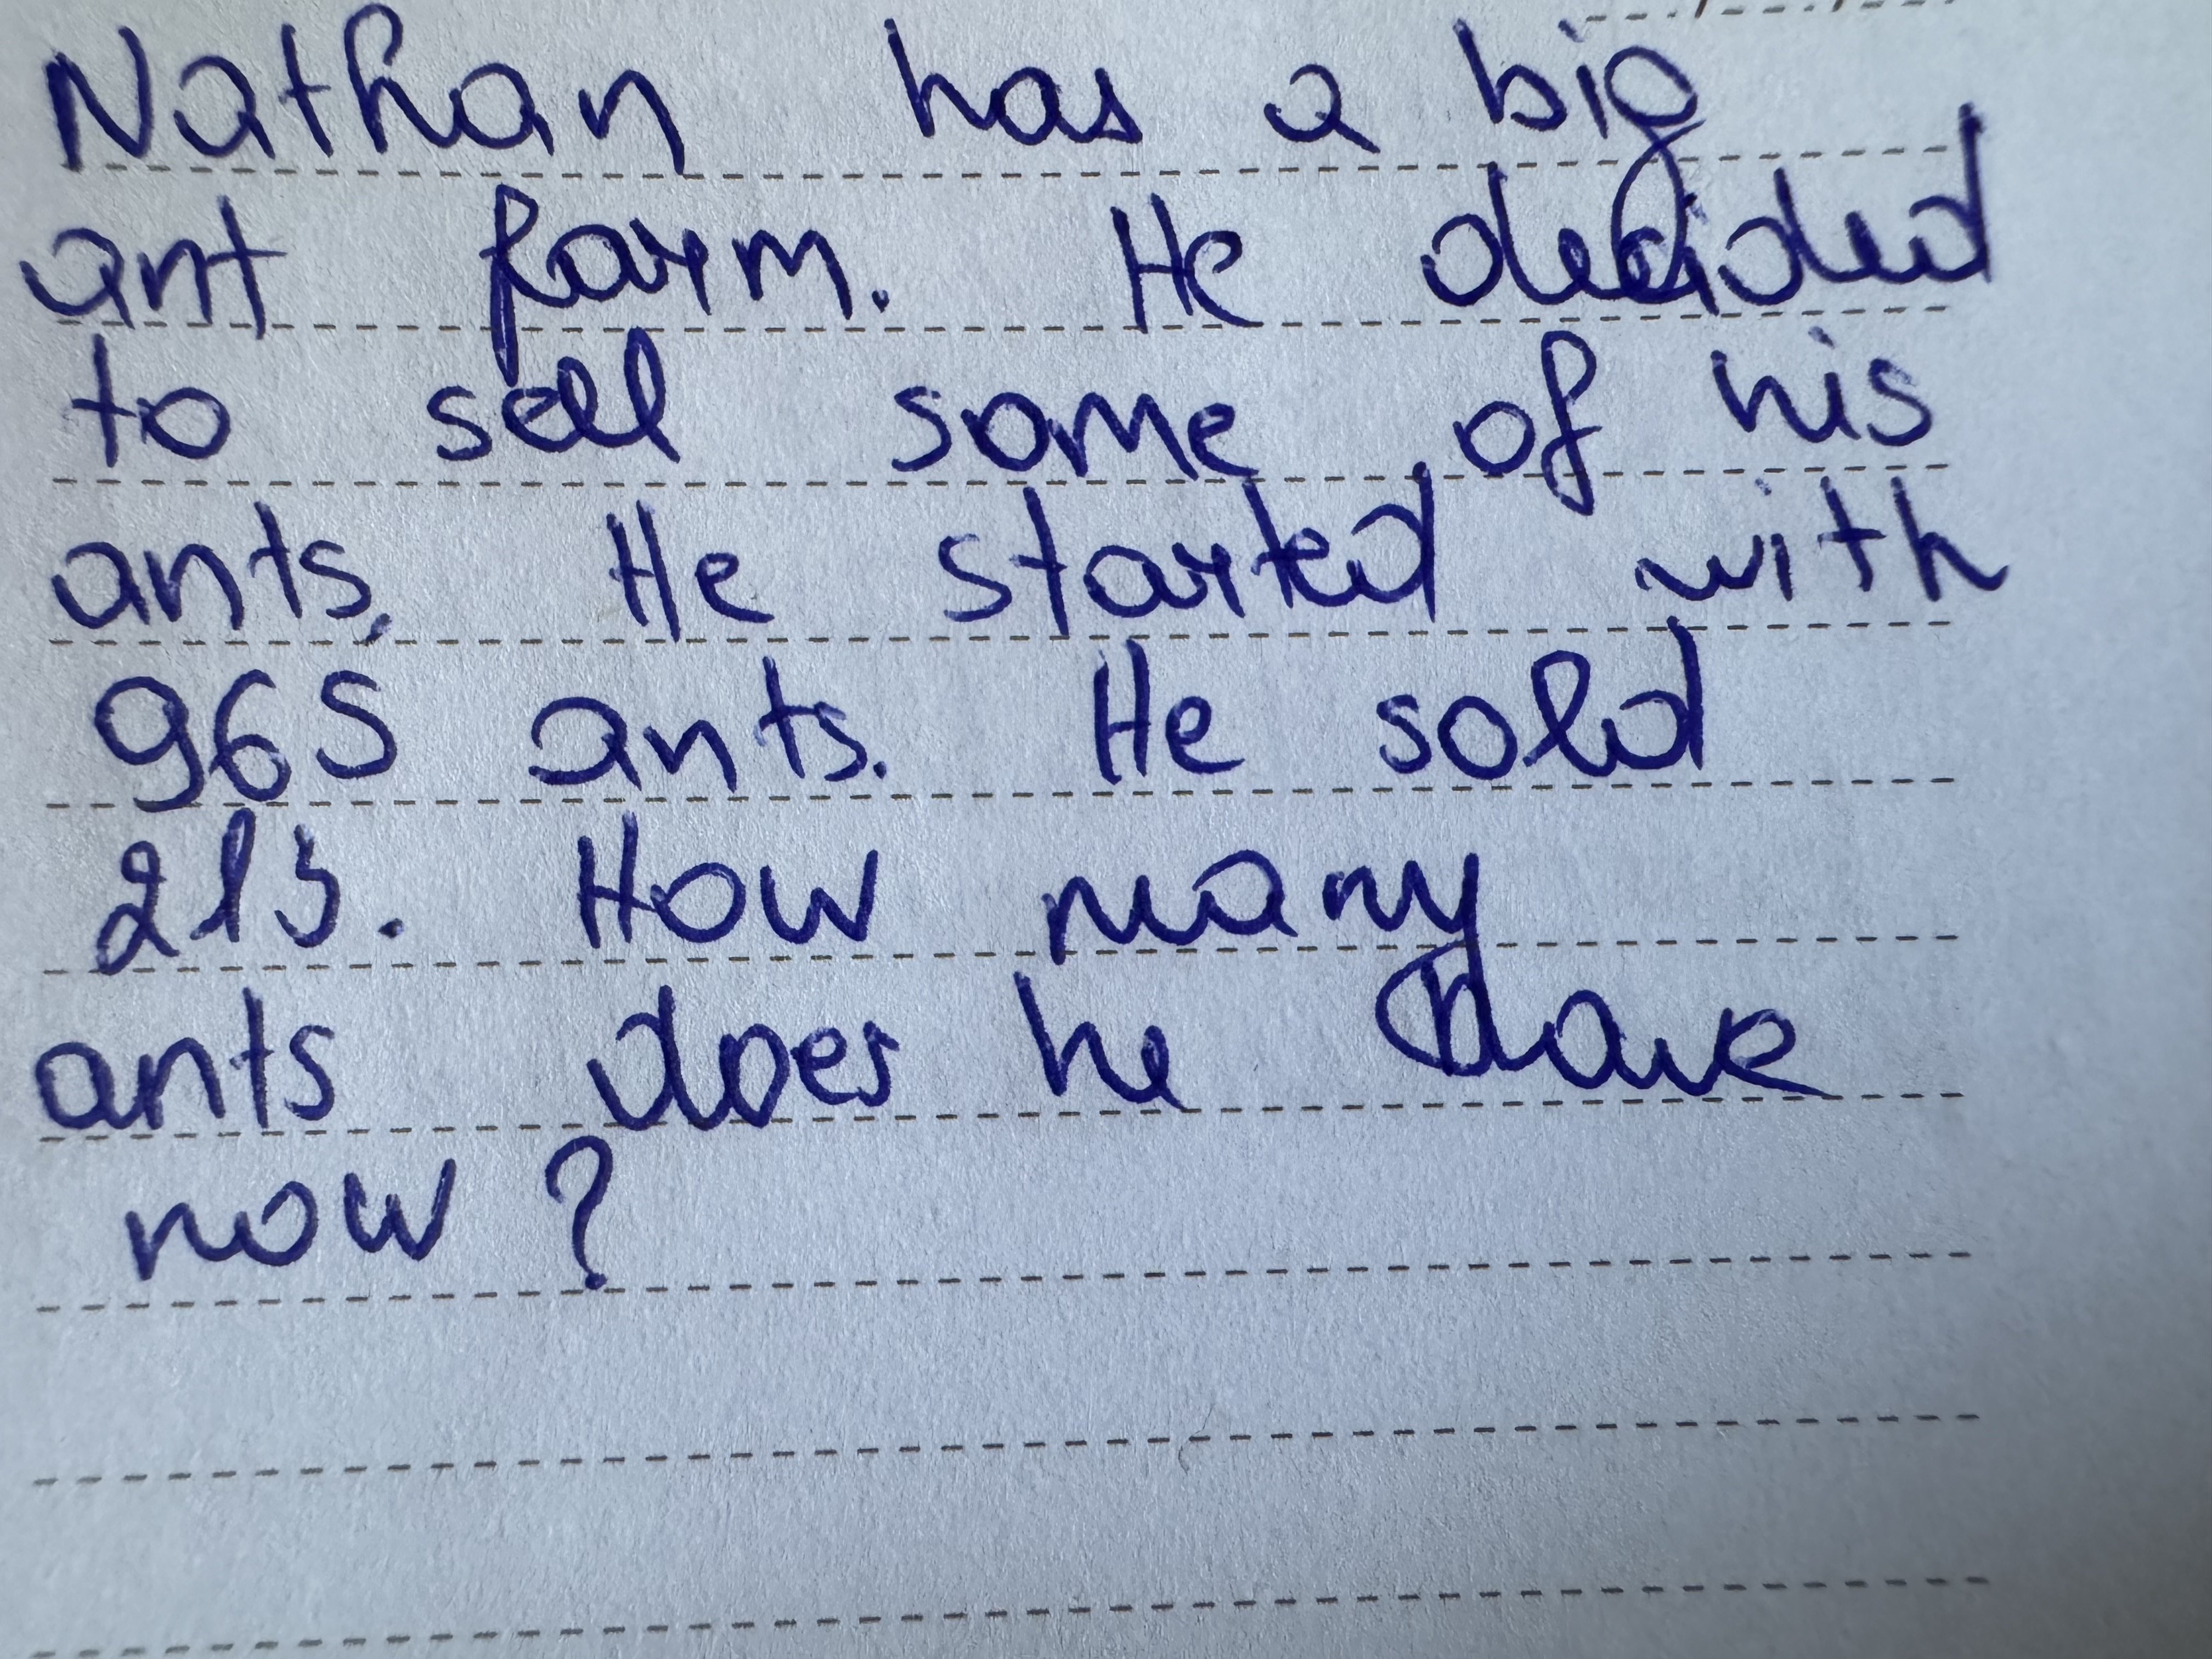 Nathan has a big
ant farm. He decided
to sell some of his
ants. He started with
965 ants. He sold
213. How many
ants does he have
now?